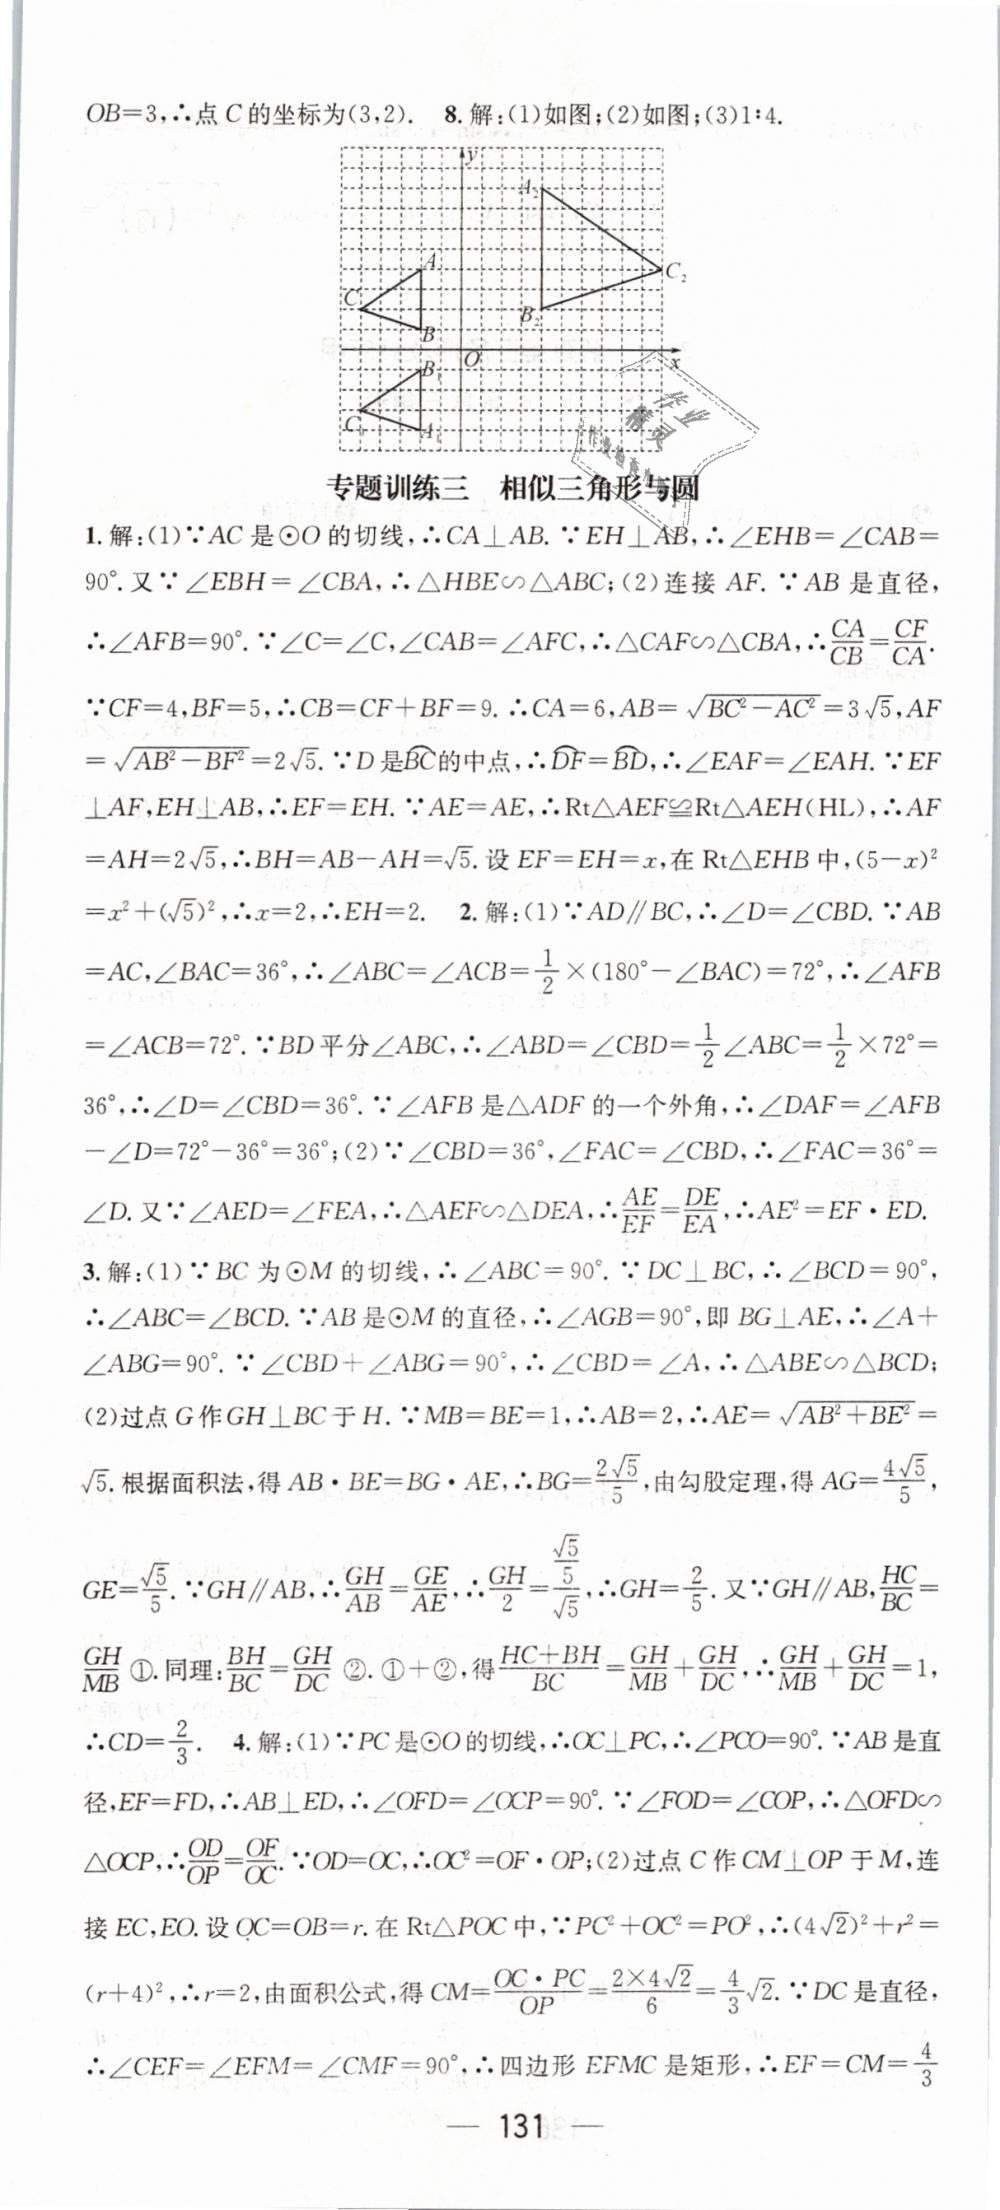 OB=3,∴点 C 的坐标为(3,2). 8. 解:(1)如图;(2)如图;(3)1∶4.
y
A₂
A
C₂
C
B₂
B
O
x
B₁
C₁
A₁
作业
精灵
专题训练三 相似三角形与圆
1. 解:(1)∵AC 是⊙O 的切线,∴CA⊥AB. ∵EH⊥AB,∴∠EHB=∠CAB=
90°. 又∵∠EBH=∠CBA,∴△HBE∽△ABC;(2)连接 AF. ∵AB 是直径,
∴∠AFB=90°. ∵∠C=∠C,∠CAB=∠AFC,∴△CAF∽△CBA,∴CA/CB=CF/CA.
∵CF=4,BF=5,∴CB=CF+BF=9. ∴CA=6,AB=√(BC²-AC²)=3√5,AF
=√(AB²-BF²)=2√5. ∵D 是B͡C的中点,∴D͡F=B͡D,∴∠EAF=∠EAH. ∵EF
⊥AF,EH⊥AB,∴EF=EH. ∵AE=AE,∴Rt△AEF≌Rt△AEH(HL),∴AF
=AH=2√5,∴BH=AB-AH=√5. 设 EF=EH=x,在 Rt△EHB 中,(5-x)²
=x²+(√5)²,∴x=2,∴EH=2. 2. 解:(1)∵AD∥BC,∴∠D=∠CBD. ∵AB
=AC,∠BAC=36°,∴∠ABC=∠ACB=1/2×(180°-∠BAC)=72°,∴∠AFB
=∠ACB=72°. ∵BD 平分∠ABC,∴∠ABD=∠CBD=1/2∠ABC=1/2×72°=
36°,∴∠D=∠CBD=36°. ∵∠AFB 是△ADF 的一个外角,∴∠DAF=∠AFB
-∠D=72°-36°=36°;(2)∵∠CBD=36°,∠FAC=∠CBD,∴∠FAC=36°=
∠D. 又∵∠AED=∠FEA,∴△AEF∽△DEA,∴AE/EF=DE/EA,∴AE²=EF·ED.
3. 解:(1)∵BC 为⊙M 的切线,∴∠ABC=90°. ∵DC⊥BC,∴∠BCD=90°,
∴∠ABC=∠BCD. ∵AB 是⊙M 的直径,∴∠AGB=90°,即 BG⊥AE,∴∠A+
∠ABG=90°. ∵∠CBD+∠ABG=90°,∴∠CBD=∠A,∴△ABE∽△BCD;
(2)过点 G 作 GH⊥BC 于 H. ∵MB=BE=1,∴AB=2,∴AE=√(AB²+BE²)=
√5. 根据面积法,得 AB·BE=BG·AE,∴BG=2√5/5,由勾股定理,得 AG=4√5/5,
GE=√5/5. ∵GH∥AB,∴GH/AB=GE/AE,∴GH/2=(√5/5)/√5,∴GH=2/5. 又∵GH∥AB,HC/BC=
GH/MB ①. 同理:BH/BC=GH/DC ②. ①+②,得(HC+BH)/BC=GH/MB+GH/DC,∴GH/MB+GH/DC=1,
∴CD=2/3. 4. 解:(1)∵PC 是⊙O 的切线,∴OC⊥PC,∴∠PCO=90°. ∵AB 是直
径,EF=FD,∴AB⊥ED,∴∠OFD=∠OCP=90°. ∵∠FOD=∠COP,∴△OFD∽
△OCP,∴OD/OP=OF/OC. ∵OD=OC,∴OC²=OF·OP;(2)过点 C 作 CM⊥OP 于 M,连
接 EC,EO. 设 OC=OB=r. 在 Rt△POC 中,∵PC²+OC²=PO²,∴(4√2)²+r²=
(r+4)²,∴r=2,由面积公式,得 CM=OC·PC/OP=2×4√2/6=4/3√2. ∵DC 是直径,
∴∠CEF=∠EFM=∠CMF=90°,∴四边形 EFMC 是矩形,∴EF=CM=4/3
— 131 —